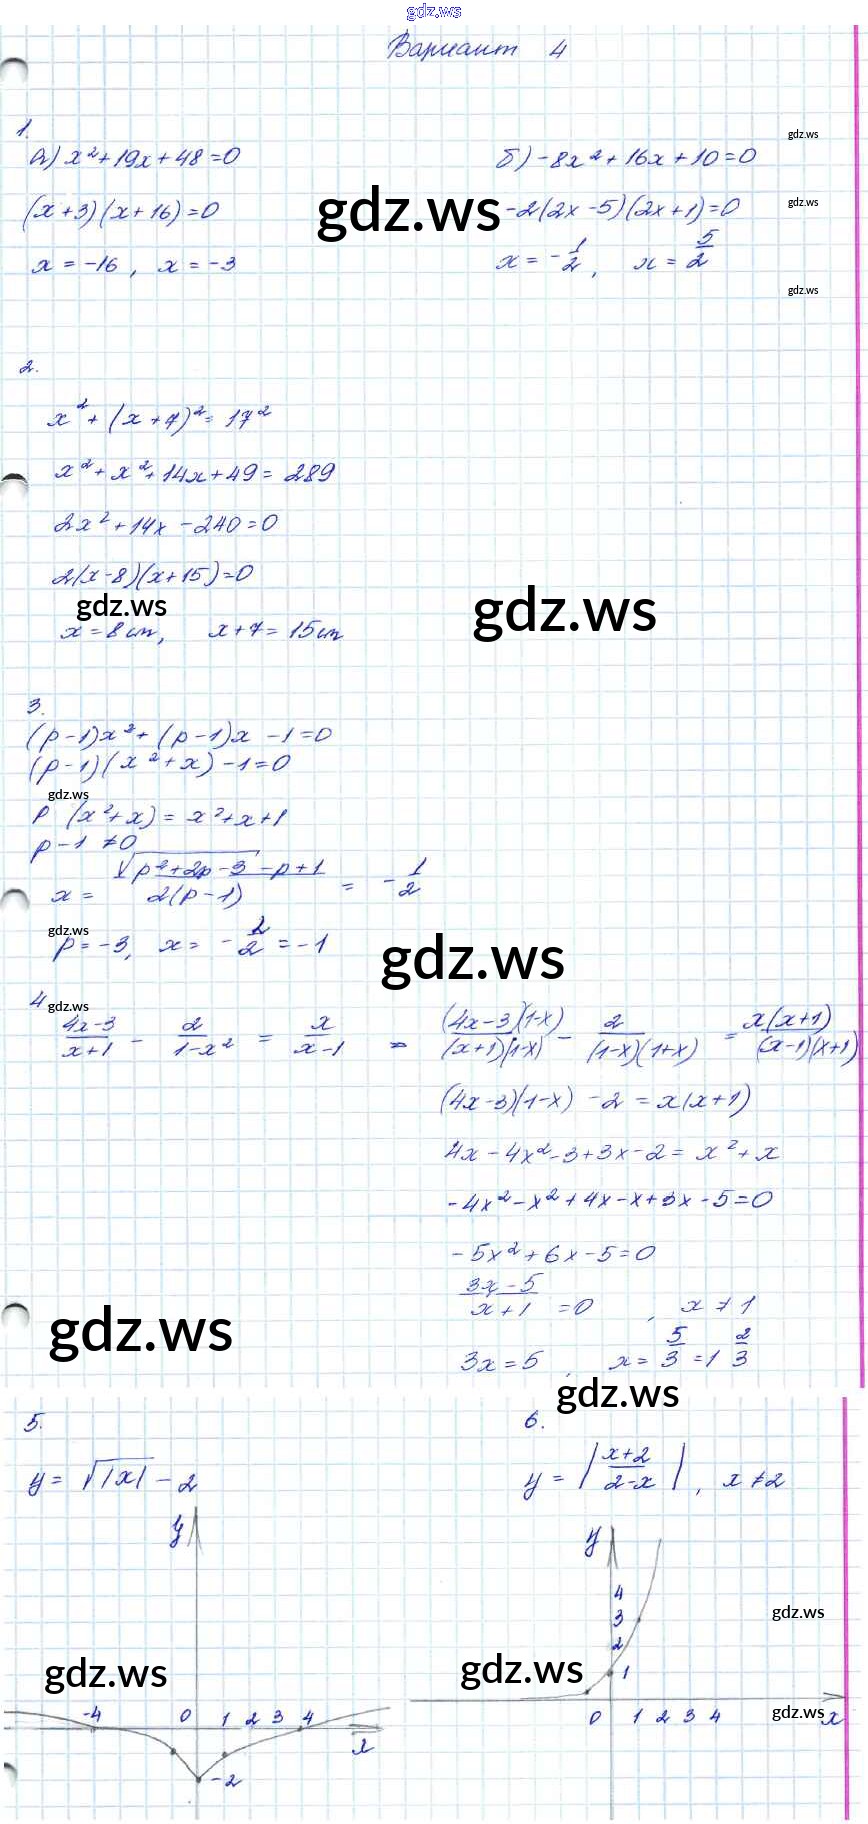 gdz.ws
Вариант 4
1.
а) x²+19x+48=0
(x+3)(x+16)=0
x=-16, x=-3
б) -8x²+16x+10=0
-2(2x-5)(2x+1)=0
x=-1/2, x=5/2
gdz.ws
gdz.ws
gdz.ws
gdz.ws
2.
x²+(x+7)²=17²
x²+x²+14x+49=289
2x²+14x-240=0
2(x-8)(x+15)=0
gdz.ws
gdz.ws
x=8см, x+7=15см
3.
(p-1)x²+(p-1)x-1=0
(p-1)(x²+x)-1=0
gdz.ws
p(x²+x)=x²+x+1
p-1≠0
x=(√(p²+2p-3)-p+1)/(2(p-1))=-1/2
gdz.ws
p=-3, x=-2/2=-1
gdz.ws
4
gdz.ws
(4x-3)/(x+1)-2/(1-x²)=x/(x-1) = ((4x-3)(1-x))/((x+1)(1-x))-2/((1-x)(1+x))=(x(x+1))/((x-1)(x+1))
(4x-3)(1-x)-2=x(x+1)
4x-4x²-3+3x-2=x²+x
-4x²-x²+4x-x+3x-5=0
-5x²+6x-5=0
(3x-5)/(x+1)=0, x≠1
3x=5, x=5/3=1 2/3
gdz.ws
gdz.ws
5.
y=√|x|-2
y
-4 0 1 2 3 4
x
-2
gdz.ws
6.
y=|(x+2)/(2-x)|, x≠2
y
4
3
2
1
0 1 2 3 4
x
gdz.ws
gdz.ws
gdz.ws